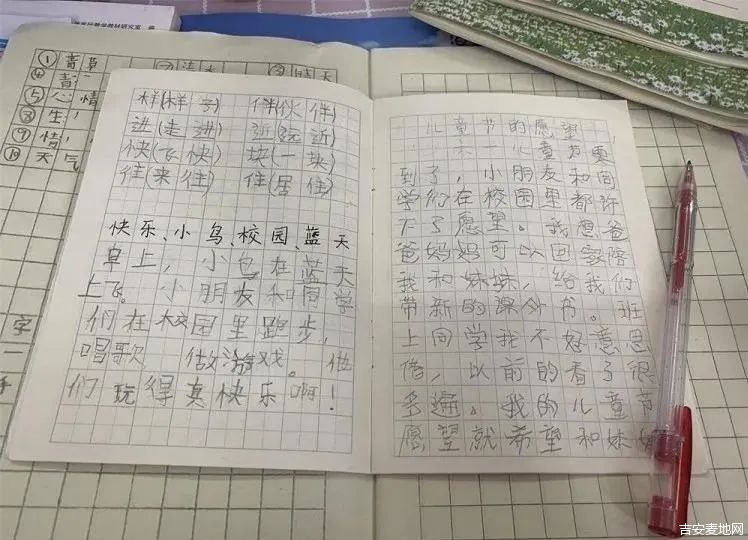 样(样子) 伴(伙伴)
进(走进) 近(远近)
快(飞快) 块(一块)
往(来往) 住(居住)
快乐、小鸟、校园、蓝天
早上,小鸟在蓝天
上飞。小朋友和同学
们在校园里跑步,
唱歌 做游戏。他
们玩得真快乐啊!
儿童节的愿望
六一儿童节要
到了,小朋友和同
学们在校园里都许
下了愿望。我想爸
爸妈妈可以回家陪
我和妹妹,给我们
带新的课外书。班
上同学我不好意思
借,以前的看了很
多遍。我的儿童节
愿望就希望和妹妹
① 
④
⑤ 心情
③ 生,
⑨ 情,
⑩ 天气
晴天
字
一
吉安麦地网